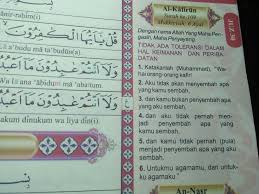 nir-rahim(i)
قُلْ يٰٓاَيُّهَا الْكٰفِرُوْنَ
a'budu mā ta'budūn(a)
وَلَآ اَنْتُمْ عٰبِدُوْنَ مَآ اَعْبُدُ
Wa lā ana 'ābidum mā 'abattum
وَلَآ اَنْتُمْ عٰبِدُوْنَ مَآ اَعْبُدُ
akum dīnukum wa liya dīn(i).
Al-Kāfirūn
Surah ke 109
Makkiyyah, 6 Ayat
JUZ 30
Dengan nama Allah Yang Maha Pengasih, Maha Penyayang.
TIDAK ADA TOLERANSI DALAM
HAL KEIMANAN DAN PERIBA-
DATAN
1. Katakanlah (Muhammad), "Wahai orang-orang kafir!
2. aku tidak akan menyembah apa
yang kamu sembah,
3. dan kamu bukan penyembah apa
yang aku sembah,
4. dan aku tidak pernah menjadi penyembah apa yang kamu
sembah,
5. dan kamu tidak pernah (pula)
menjadi penyembah apa yang aku
sembah.
6. Untukmu agamamu, dan untukku agamaku."
An-Nasr